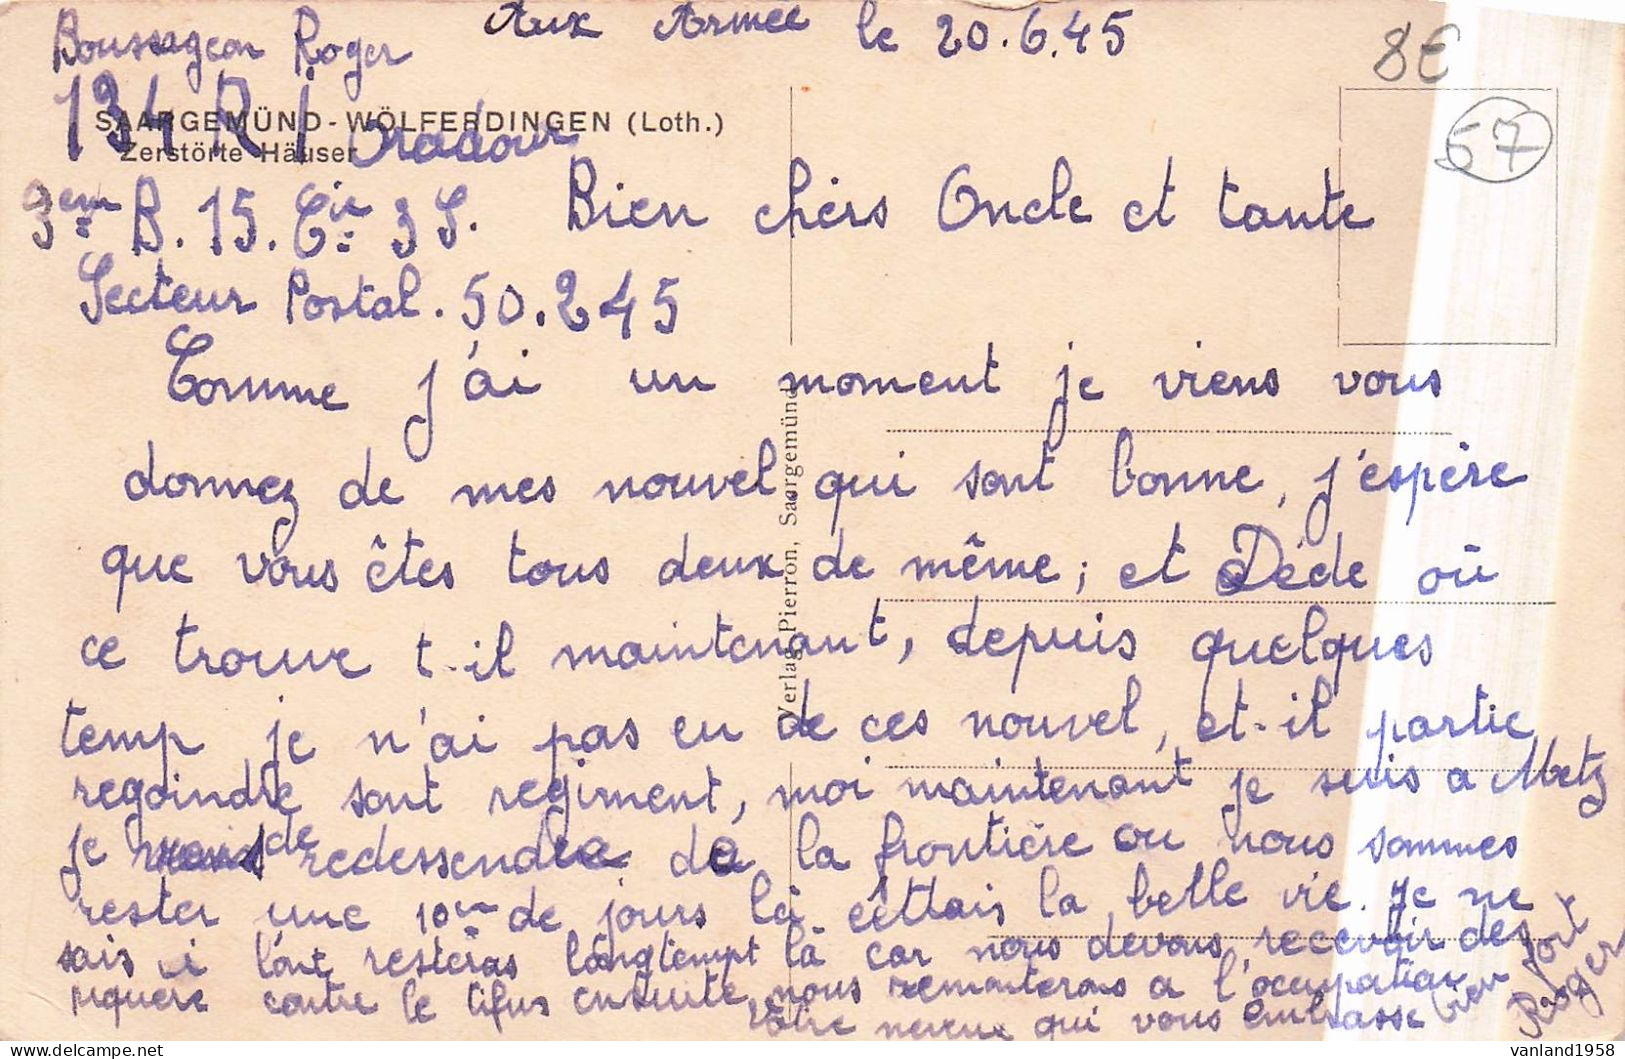 Aux Armée le 20.6.45
Boussageon Roger
8€
57
SAARGEMÜND - WÖLFERDINGEN (Loth.)
Zerstörte Häuser
134 R I Oradour
3em B. 15. Cie 3 S. Bien chers Oncle et tante
Secteur Postal. 50.245
Verlag Pierron, Saargemünd
Comme j'ai un moment je viens vous
donnez de mes nouvel qui sont bonne, j'espère
que vous êtes tous deux de même; et Dédé où
ce trouve t-il maintenant, depuis quelques
temp je n'ai pas eu de ces nouvel, et-il partie
regoindre sont regiment, moi maintenant je suis a Metz
je redessendre de la frontière ou nous sommes
rester une 10ne de jours là cèttais la belle vie. Je ne
sais i l'ont resteras longtempt là car nous devons recevoir des
piquere contre le tifus ensuite nous remonterons a l'occupation
neveux qui vous embrasse bien fort
Roger
vanland1958